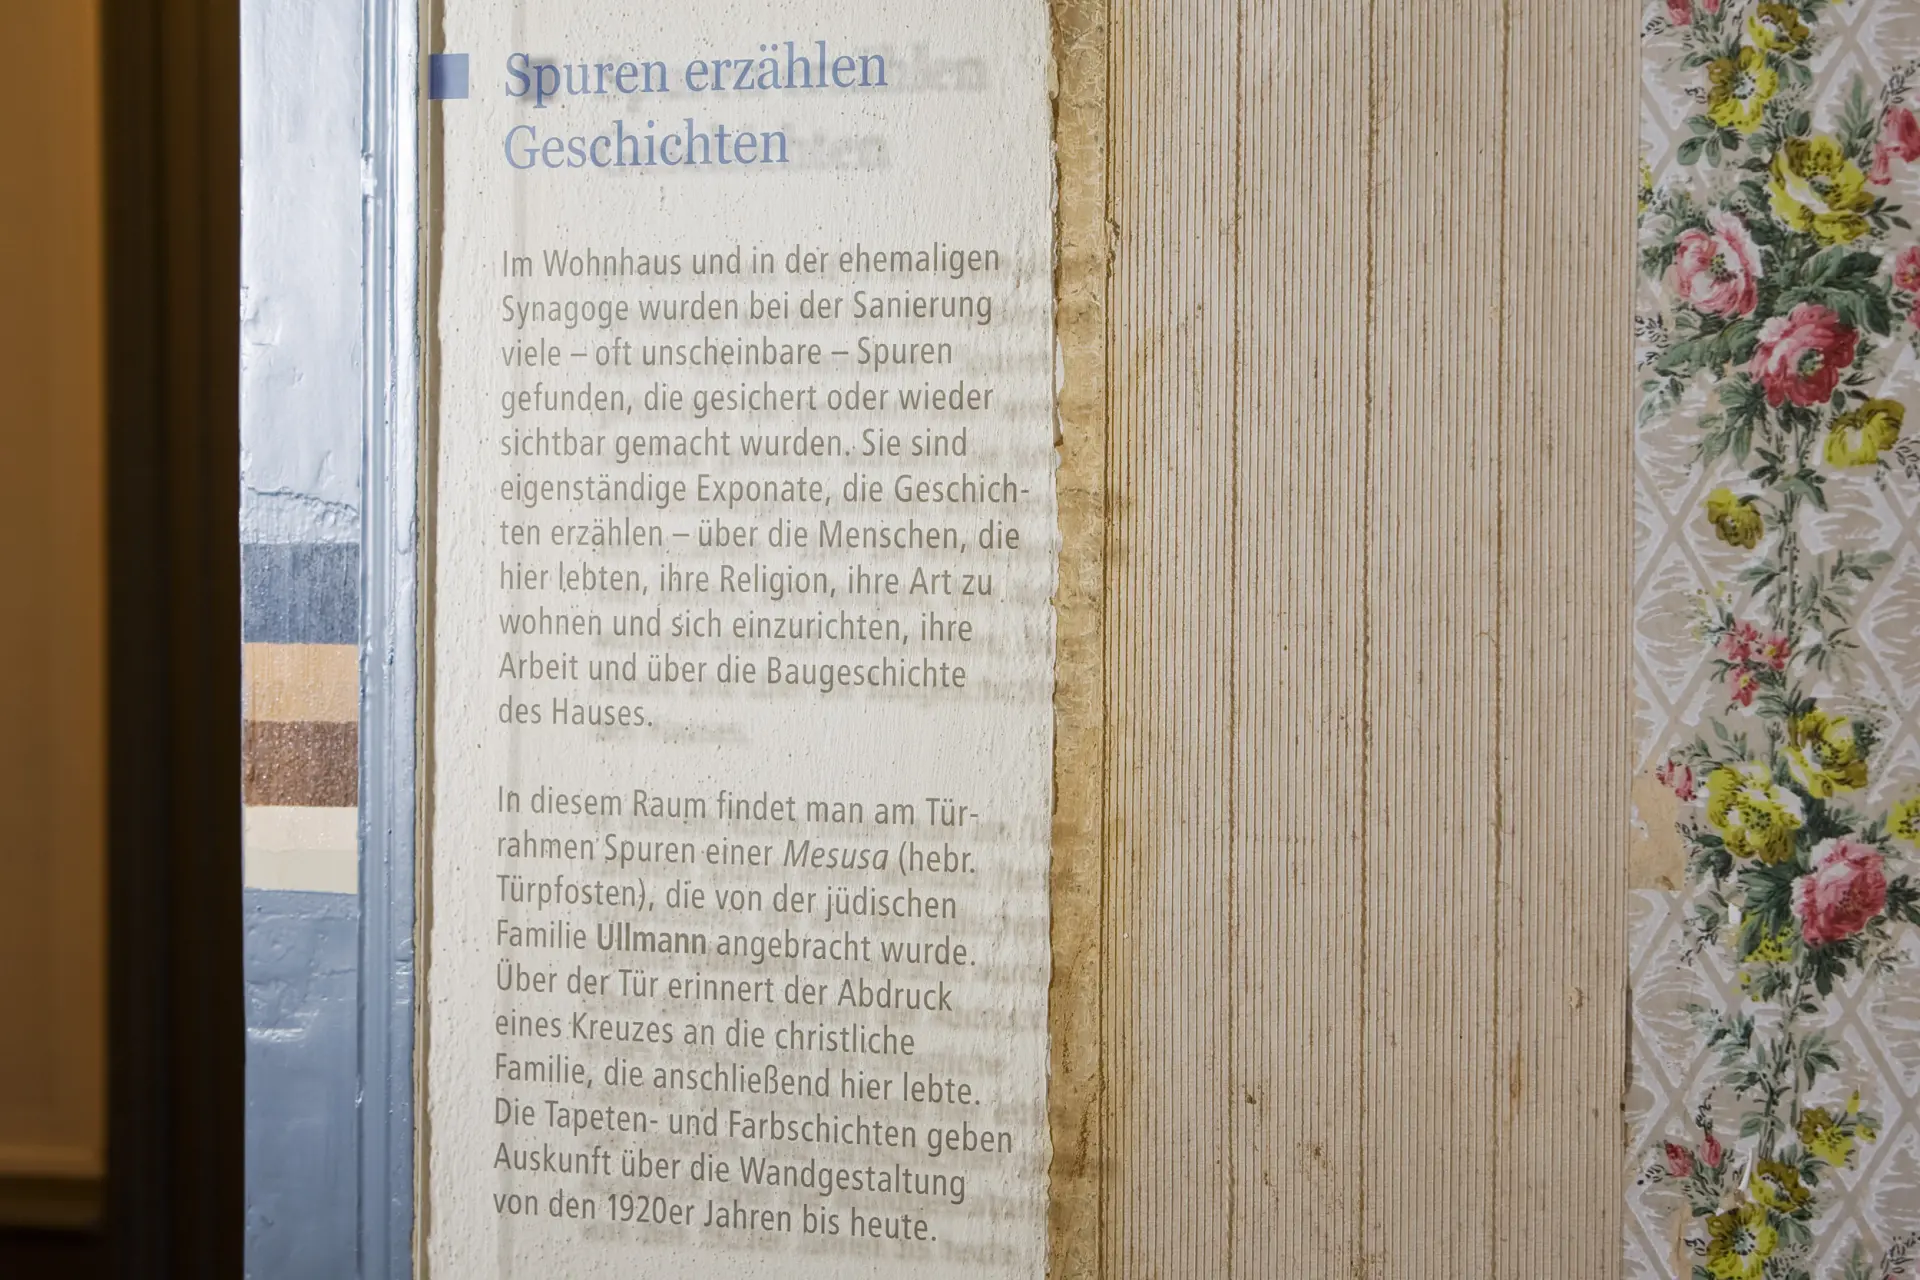 Spuren erzählen
Geschichten
Im Wohnhaus und in der ehemaligen
Synagoge wurden bei der Sanierung
viele – oft unscheinbare – Spuren
gefunden, die gesichert oder wieder
sichtbar gemacht wurden. Sie sind
eigenständige Exponate, die Geschich-
ten erzählen – über die Menschen, die
hier lebten, ihre Religion, ihre Art zu
wohnen und sich einzurichten, ihre
Arbeit und über die Baugeschichte
des Hauses.
In diesem Raum findet man am Tür-
rahmen Spuren einer Mesusa (hebr.
Türpfosten), die von der jüdischen
Familie Ullmann angebracht wurde.
Über der Tür erinnert der Abdruck
eines Kreuzes an die christliche
Familie, die anschließend hier lebte.
Die Tapeten- und Farbschichten geben
Auskunft über die Wandgestaltung
von den 1920er Jahren bis heute.